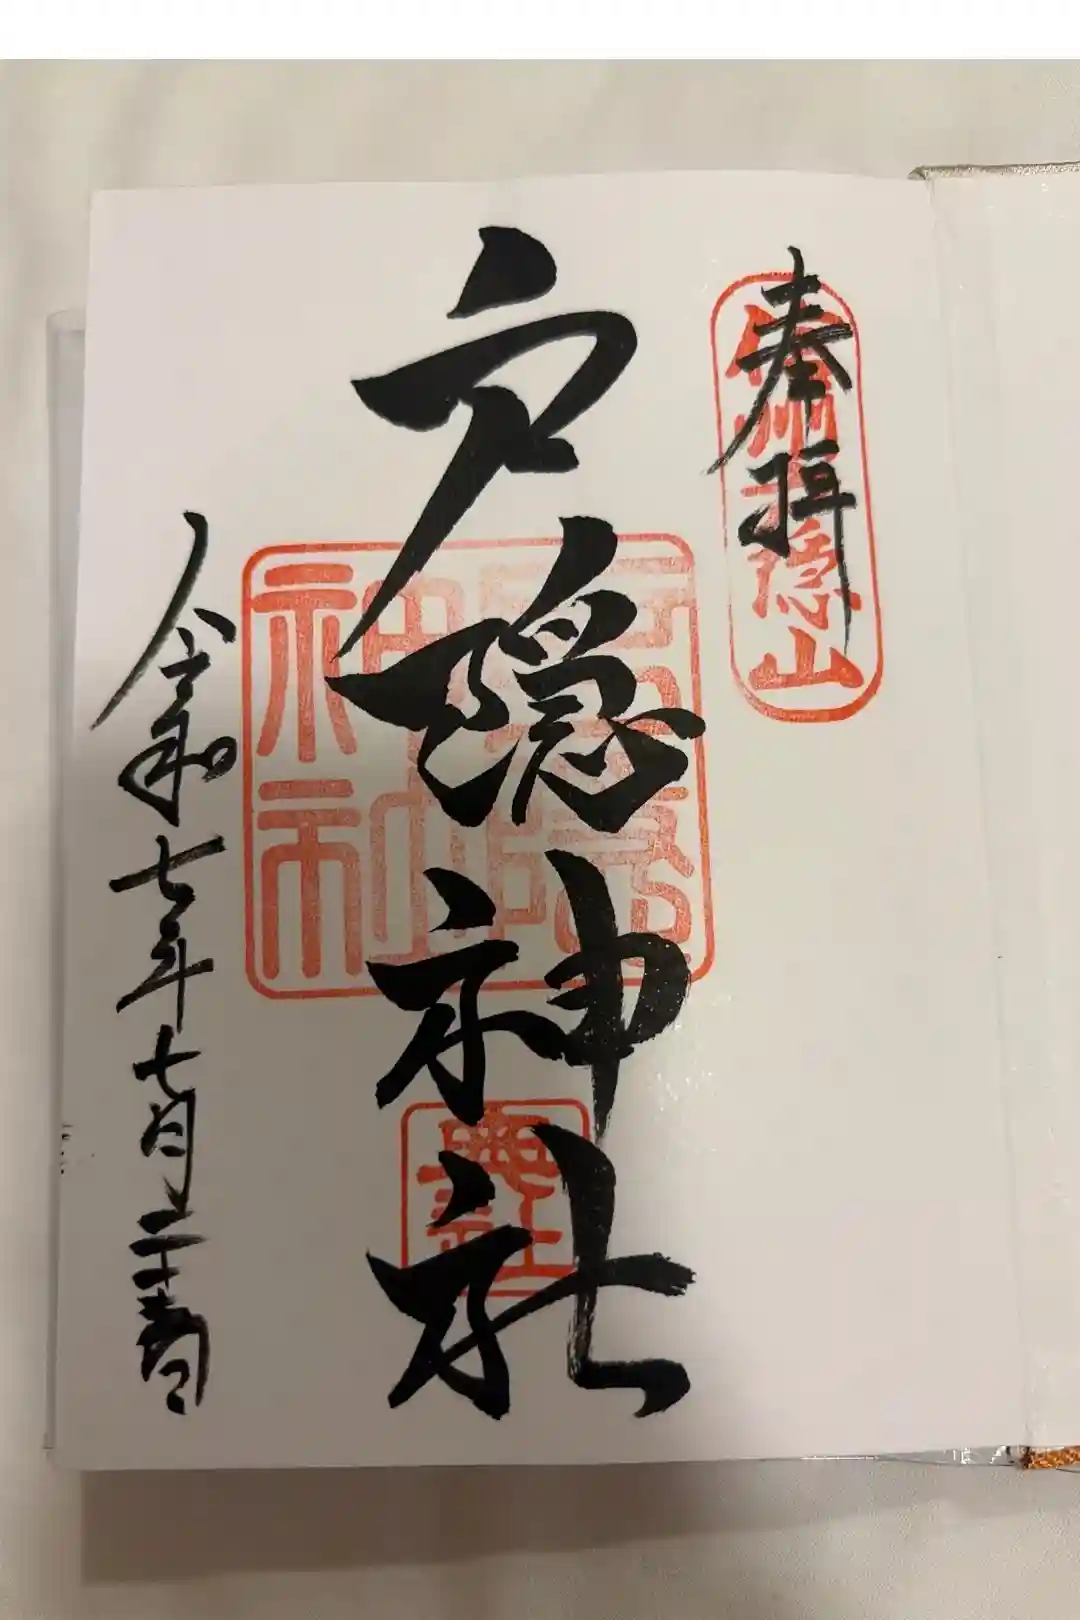 奉拝
信州戸隠山
戸隠神社
戸隠神社
奥社
令和七年七月二十